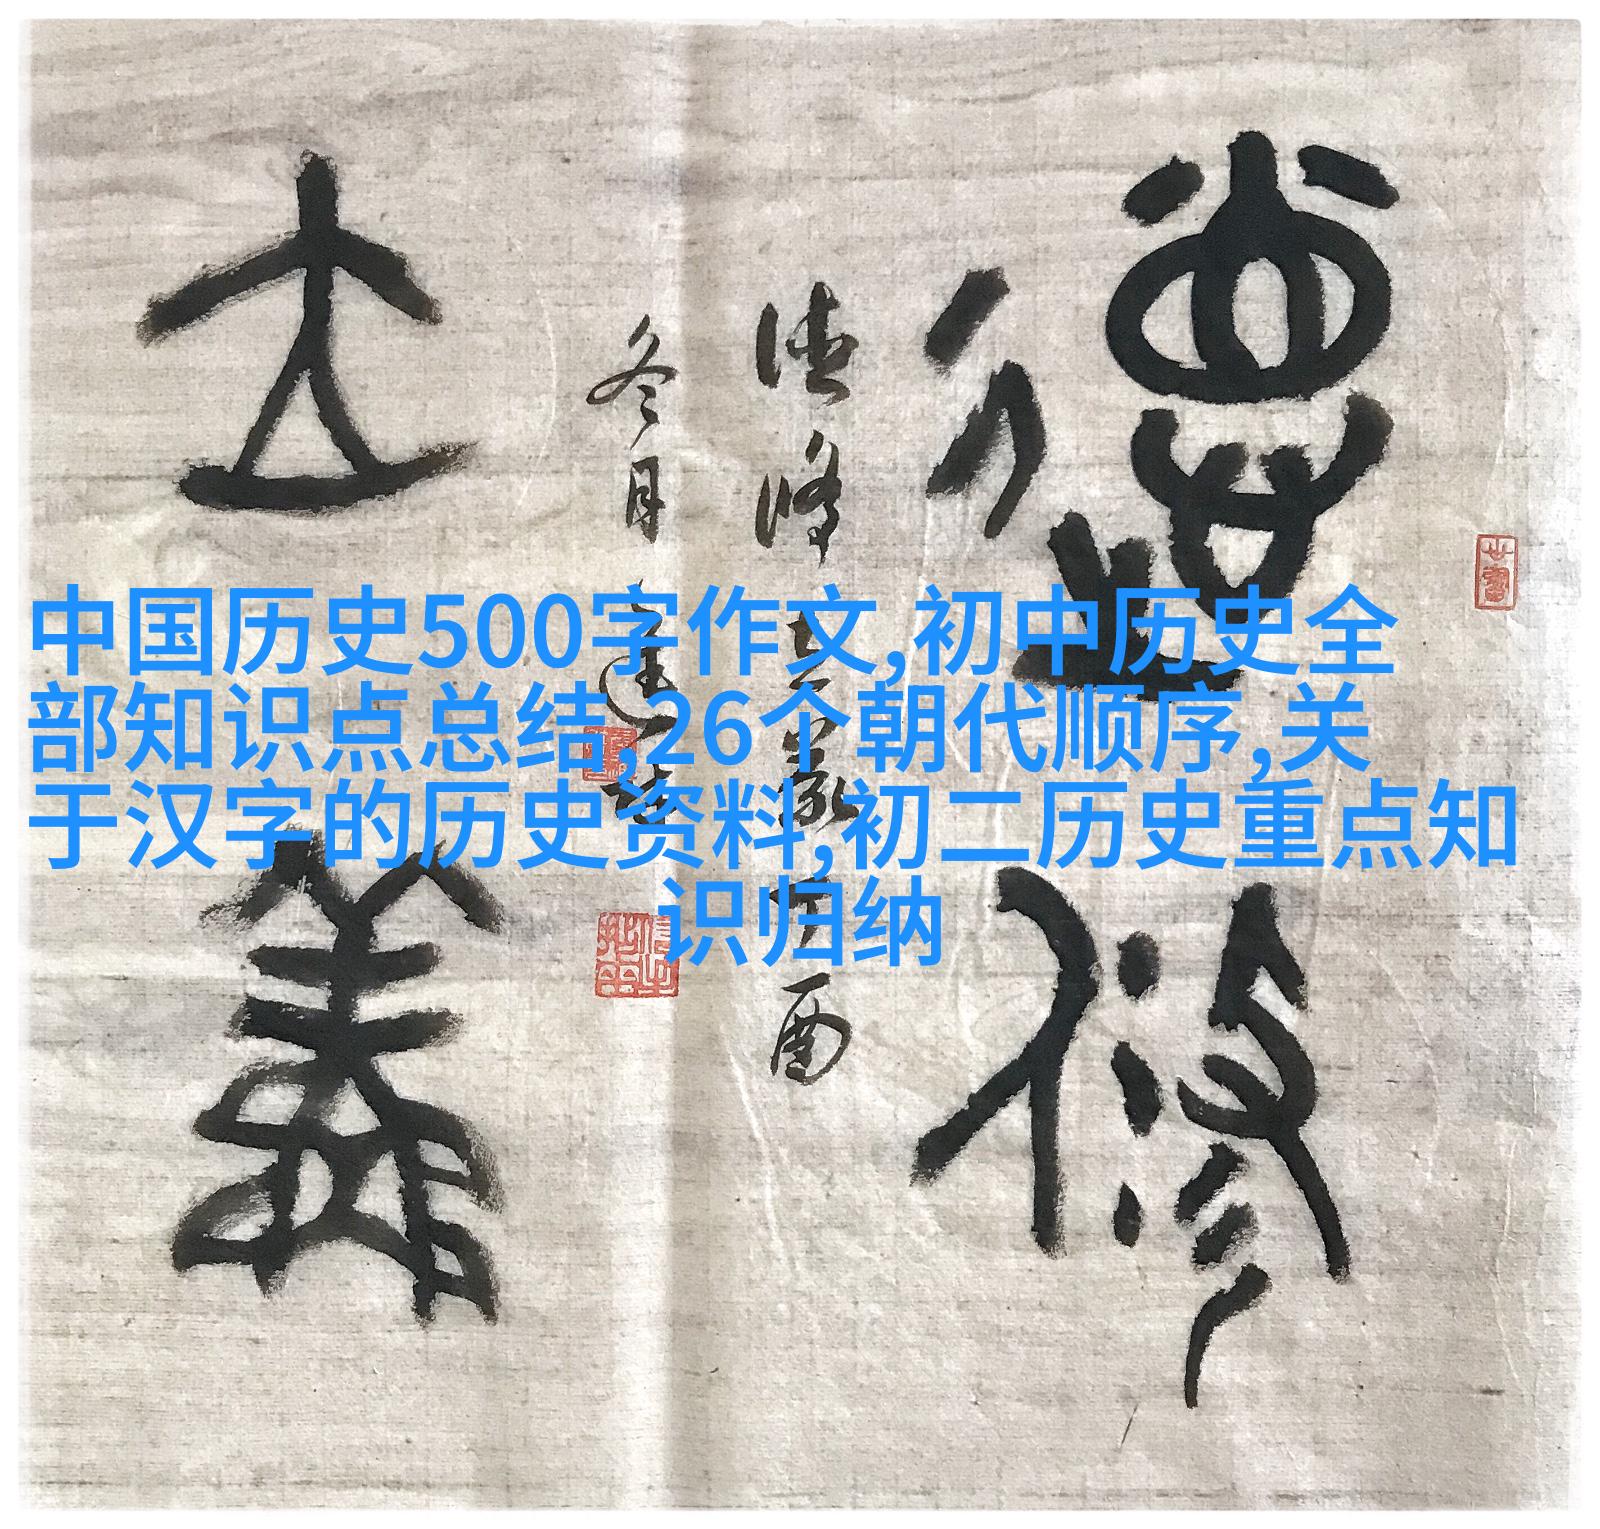 中国历史500字作文,初中历史全
部知识点总结,26个朝代顺序,关
于汉字的历史资料,初二历史重点知
识归纳
德修
立义
德修立义丁酉
冬月